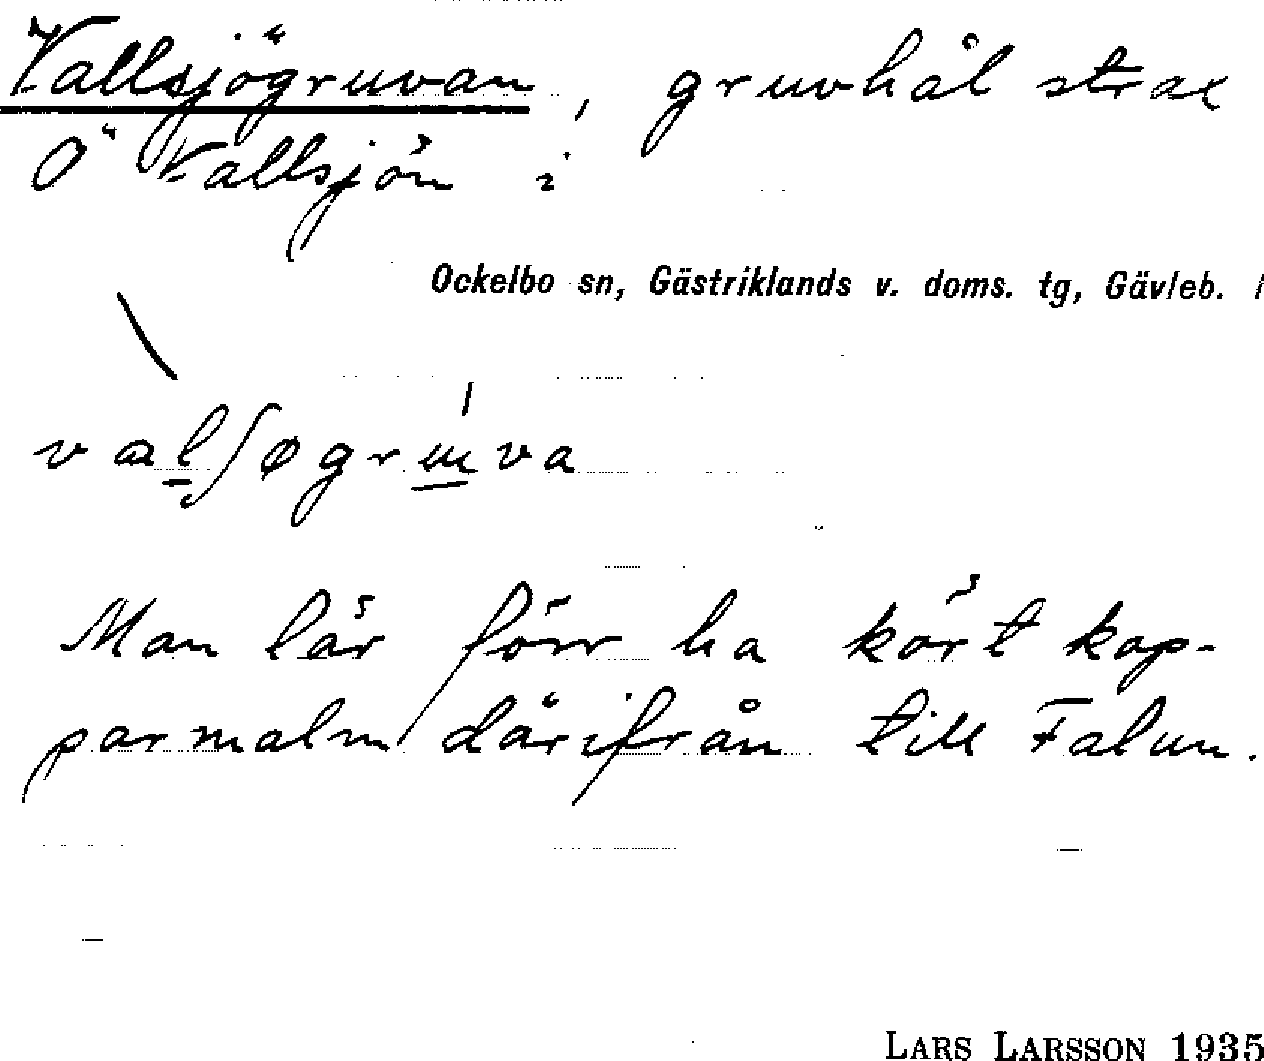 Vallsjögruvan, gruvhål strax
Ö Vallsjön i
Ockelbo sn, Gästriklands v. doms. tg, Gävleb. l
valʃøgruva
Man lär förr ha kört kop-
parmalm därifrån till Falun.
LARS LARSSON 1935